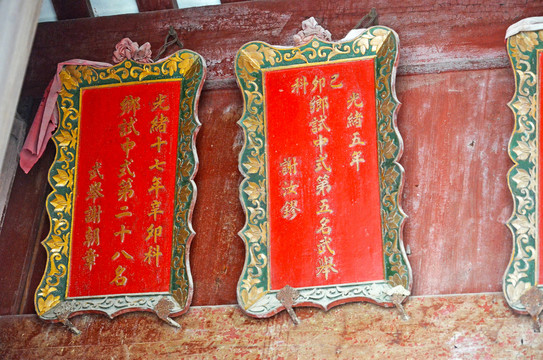 光緒五年
己卯科鄉試中式第五名武舉
謝汝鏐
光緒十七年辛卯科
鄉試中式第二十八名
武舉謝朝章